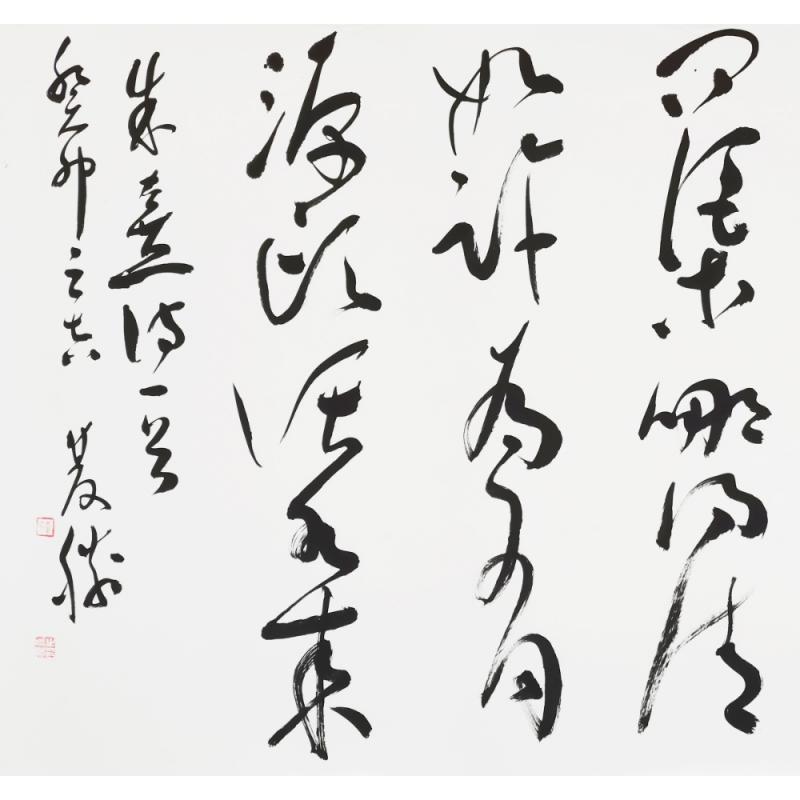 問渠哪得清
如許為有
源頭活水來
朱熹詩一首
癸卯之吉